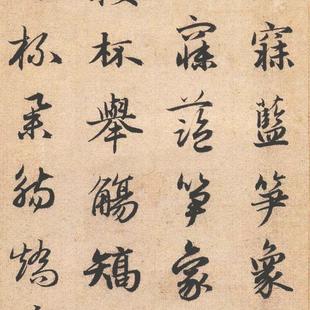 寐藍笋象
寐藍笋象
杯舉觴矯
杯舉觴矯